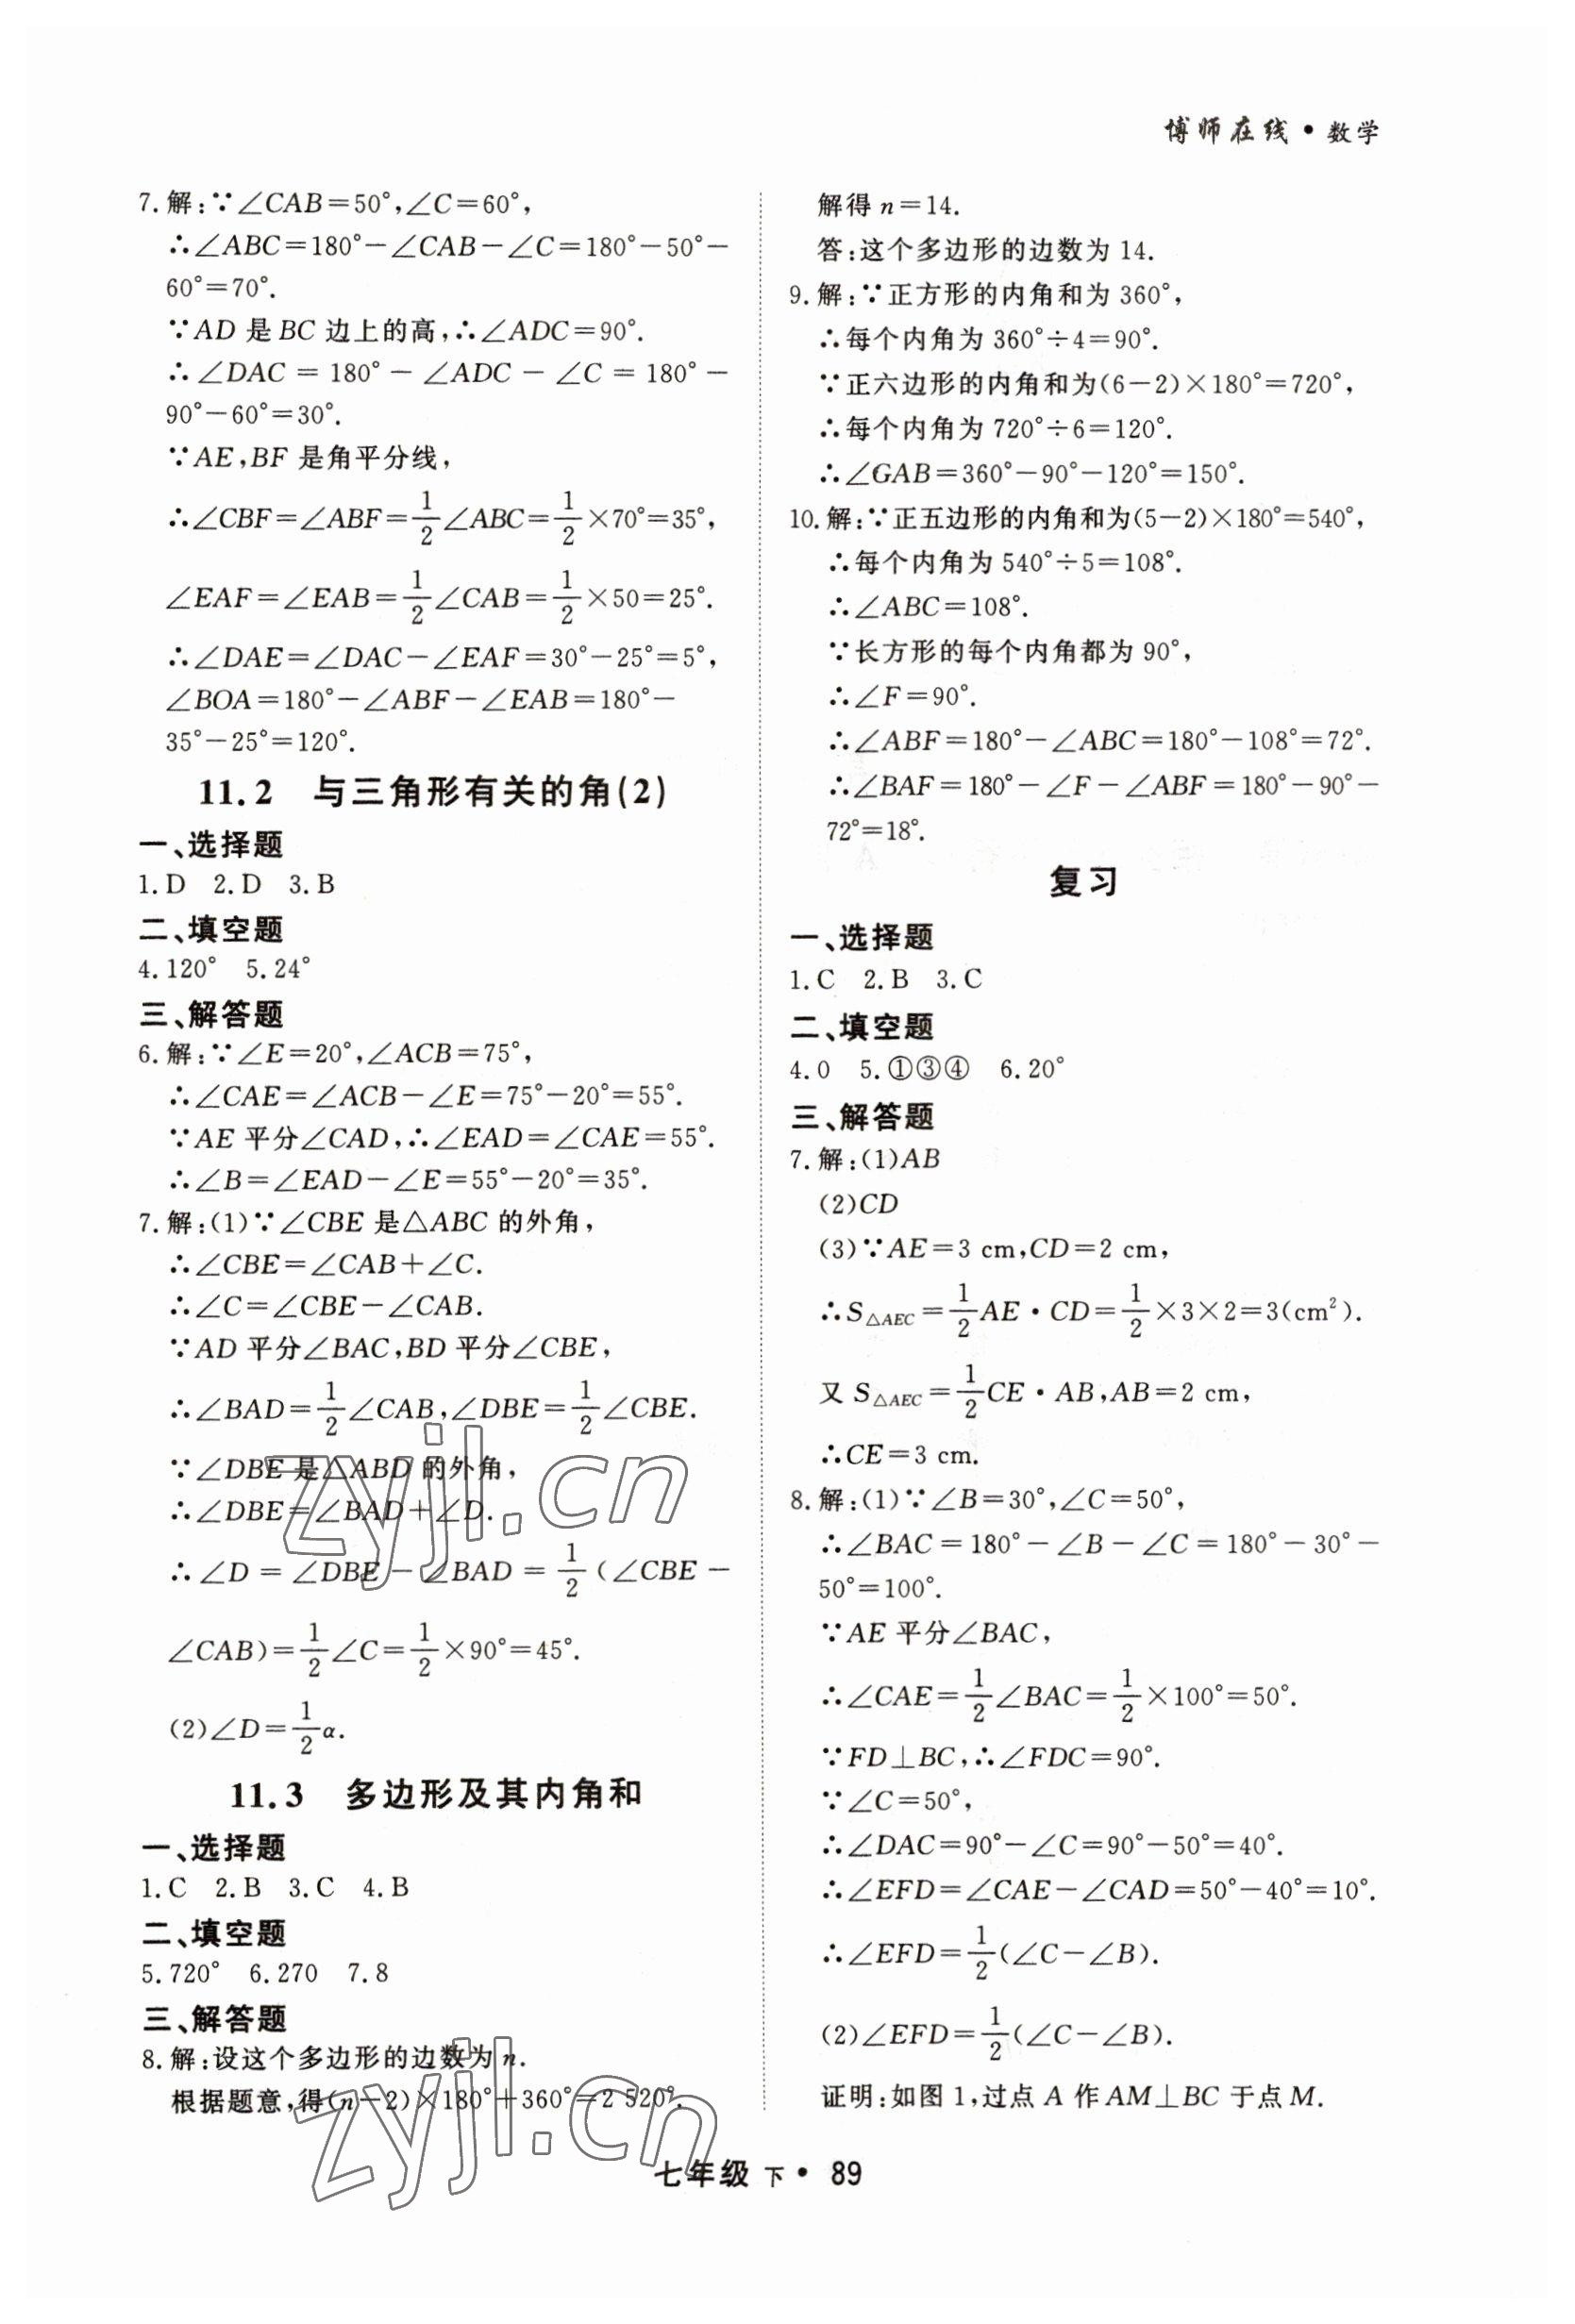 博师在线·数学
7.解:∵∠CAB=50°,∠C=60°,
∴∠ABC=180°-∠CAB-∠C=180°-50°-
60°=70°.
∵AD 是 BC 边上的高,∴∠ADC=90°.
∴∠DAC=180°-∠ADC-∠C=180°-
90°-60°=30°.
∵AE,BF 是角平分线,
∴∠CBF=∠ABF=1/2∠ABC=1/2×70°=35°,
∠EAF=∠EAB=1/2∠CAB=1/2×50=25°.
∴∠DAE=∠DAC-∠EAF=30°-25°=5°,
∠BOA=180°-∠ABF-∠EAB=180°-
35°-25°=120°.
11.2 与三角形有关的角(2)
一、选择题
1.D 2.D 3.B
二、填空题
4.120° 5.24°
三、解答题
6.解:∵∠E=20°,∠ACB=75°,
∴∠CAE=∠ACB-∠E=75°-20°=55°.
∵AE 平分∠CAD,∴∠EAD=∠CAE=55°.
∴∠B=∠EAD-∠E=55°-20°=35°.
7.解:(1)∵∠CBE 是△ABC 的外角,
∴∠CBE=∠CAB+∠C.
∴∠C=∠CBE-∠CAB.
∵AD 平分∠BAC,BD 平分∠CBE,
∴∠BAD=1/2∠CAB,∠DBE=1/2∠CBE.
∵∠DBE 是△ABD 的外角,
∴∠DBE=∠BAD+∠D.
∴∠D=∠DBE-∠BAD=1/2(∠CBE-
∠CAB)=1/2∠C=1/2×90°=45°.
(2)∠D=1/2α.
11.3 多边形及其内角和
一、选择题
1.C 2.B 3.C 4.B
二、填空题
5.720° 6.270 7.8
三、解答题
8.解:设这个多边形的边数为 n.
根据题意,得(n-2)×180°+360°=2 520°.
解得 n=14.
答:这个多边形的边数为 14.
9.解:∵正方形的内角和为 360°,
∴每个内角为 360°÷4=90°.
∵正六边形的内角和为(6-2)×180°=720°,
∴每个内角为 720°÷6=120°.
∴∠GAB=360°-90°-120°=150°.
10.解:∵正五边形的内角和为(5-2)×180°=540°,
∴每个内角为 540°÷5=108°.
∴∠ABC=108°.
∵长方形的每个内角都为 90°,
∴∠F=90°.
∴∠ABF=180°-∠ABC=180°-108°=72°.
∴∠BAF=180°-∠F-∠ABF=180°-90°-
72°=18°.
复习
一、选择题
1.C 2.B 3.C
二、填空题
4.0 5.①③④ 6.20°
三、解答题
7.解:(1)AB
(2)CD
(3)∵AE=3 cm,CD=2 cm,
∴S△AEC=1/2AE·CD=1/2×3×2=3(cm²).
又 S△AEC=1/2CE·AB,AB=2 cm,
∴CE=3 cm.
8.解:(1)∵∠B=30°,∠C=50°,
∴∠BAC=180°-∠B-∠C=180°-30°-
50°=100°.
∵AE 平分∠BAC,
∴∠CAE=1/2∠BAC=1/2×100°=50°.
∵FD⊥BC,∴∠FDC=90°.
∵∠C=50°,
∴∠DAC=90°-∠C=90°-50°=40°.
∴∠EFD=∠CAE-∠CAD=50°-40°=10°.
∴∠EFD=1/2(∠C-∠B).
(2)∠EFD=1/2(∠C-∠B).
证明:如图 1,过点 A 作 AM⊥BC 于点 M.
七年级 下·89
zyjl.cn
zyjl.cn